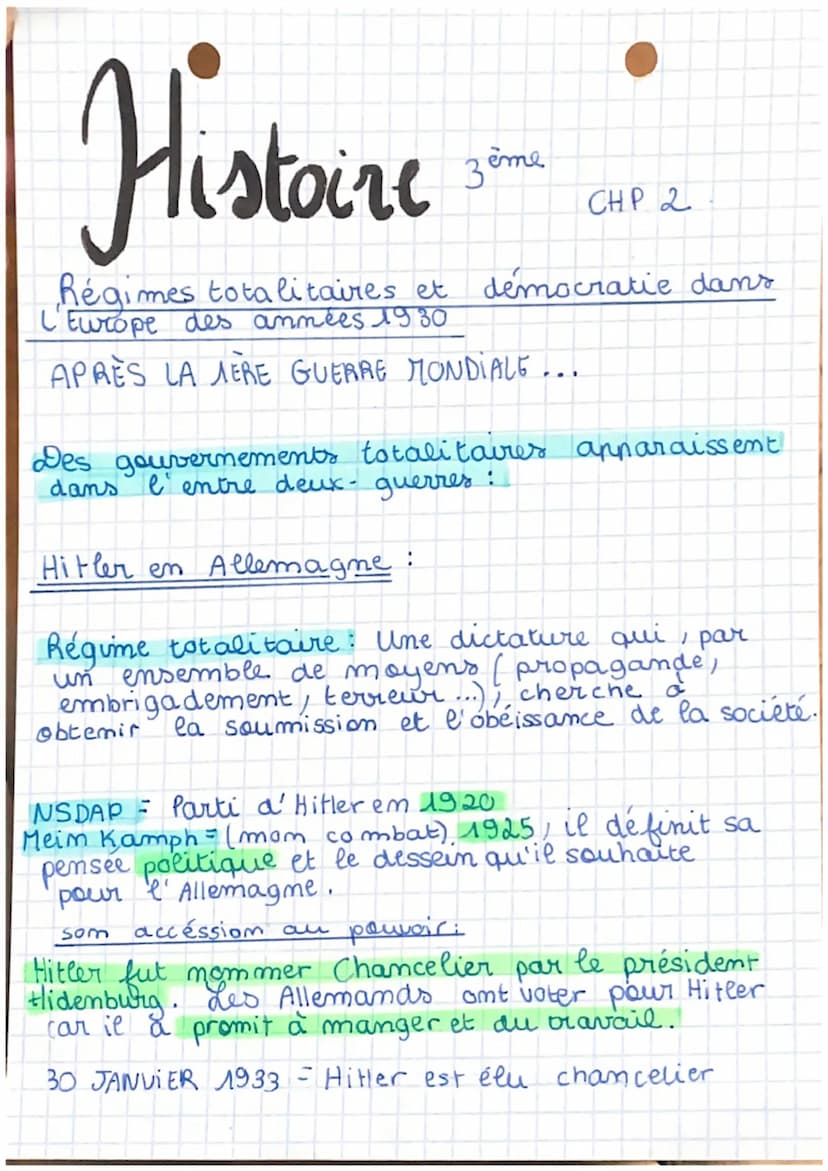 Histoire 3ème
CHP 2.
Régimes totalitaires et démocratie dans
l'Europe des années 1930
APRÈS LA 1ÈRE GUERRE MONDIALE ...
Des gouvernements totalitaires apparaissent
dans l'entre deux-guerres :
Hitler en Allemagne :
Régime totalitaire : Une dictature qui, par
un ensemble de moyens (propagande,
embrigadement, terreur ...), cherche à
obtenir la soumission et l'obéissance de la société.
NSDAP = Parti d'Hitler em 1920
Meim Kamph = (mom combat). 1925, il définit sa
pensée politique et le dessein qu'il souhaite
pour l'Allemagne.
som accéssion au pouvoir :
Hitler fut mommer Chancelier par le président
Hidenburg. Les Allemands omt voter pour Hitler
car il a promit à manger et du travail.
30 JANVIER 1933 = Hitler est élu chancelier